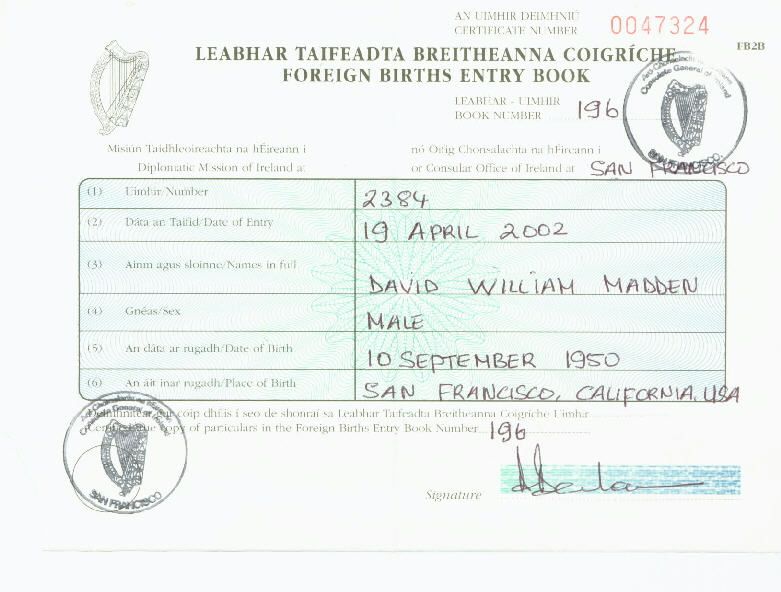 AN UIMHIR DEIMHNIÚ
CERTIFICATE NUMBER 0047324
FB2B
LEABHAR TAIFEADTA BREITHEANNA COIGRÍCHE
FOREIGN BIRTHS ENTRY BOOK
LEABHAR - UIMHIR
BOOK NUMBER 196
Consulate General of Ireland
SAN FRANCISCO
Misiún Taidhleoireachta na hÉireann i nó Oifig Chonsalachta na hÉireann i
Diplomatic Mission of Ireland at or Consular Office of Ireland at SAN FRANCISCO
(1) Uimhir/Number 2384
(2) Dáta an Taifid/Date of Entry 19 APRIL 2002
(3) Ainm agus sloinne/Names in full DAVID WILLIAM MADDEN
(4) Gnéas/Sex MALE
(5) An dáta ar rugadh/Date of Birth 10 SEPTEMBER 1950
(6) An áit inar rugadh/Place of Birth SAN FRANCISCO, CALIFORNIA, USA
cóip dhílis í seo de shonraí sa Leabhar Taifeadta Breitheanna Coigríche Uimhir
copy of particulars in the Foreign Births Entry Book Number 196
SAN FRANCISCO
Signature